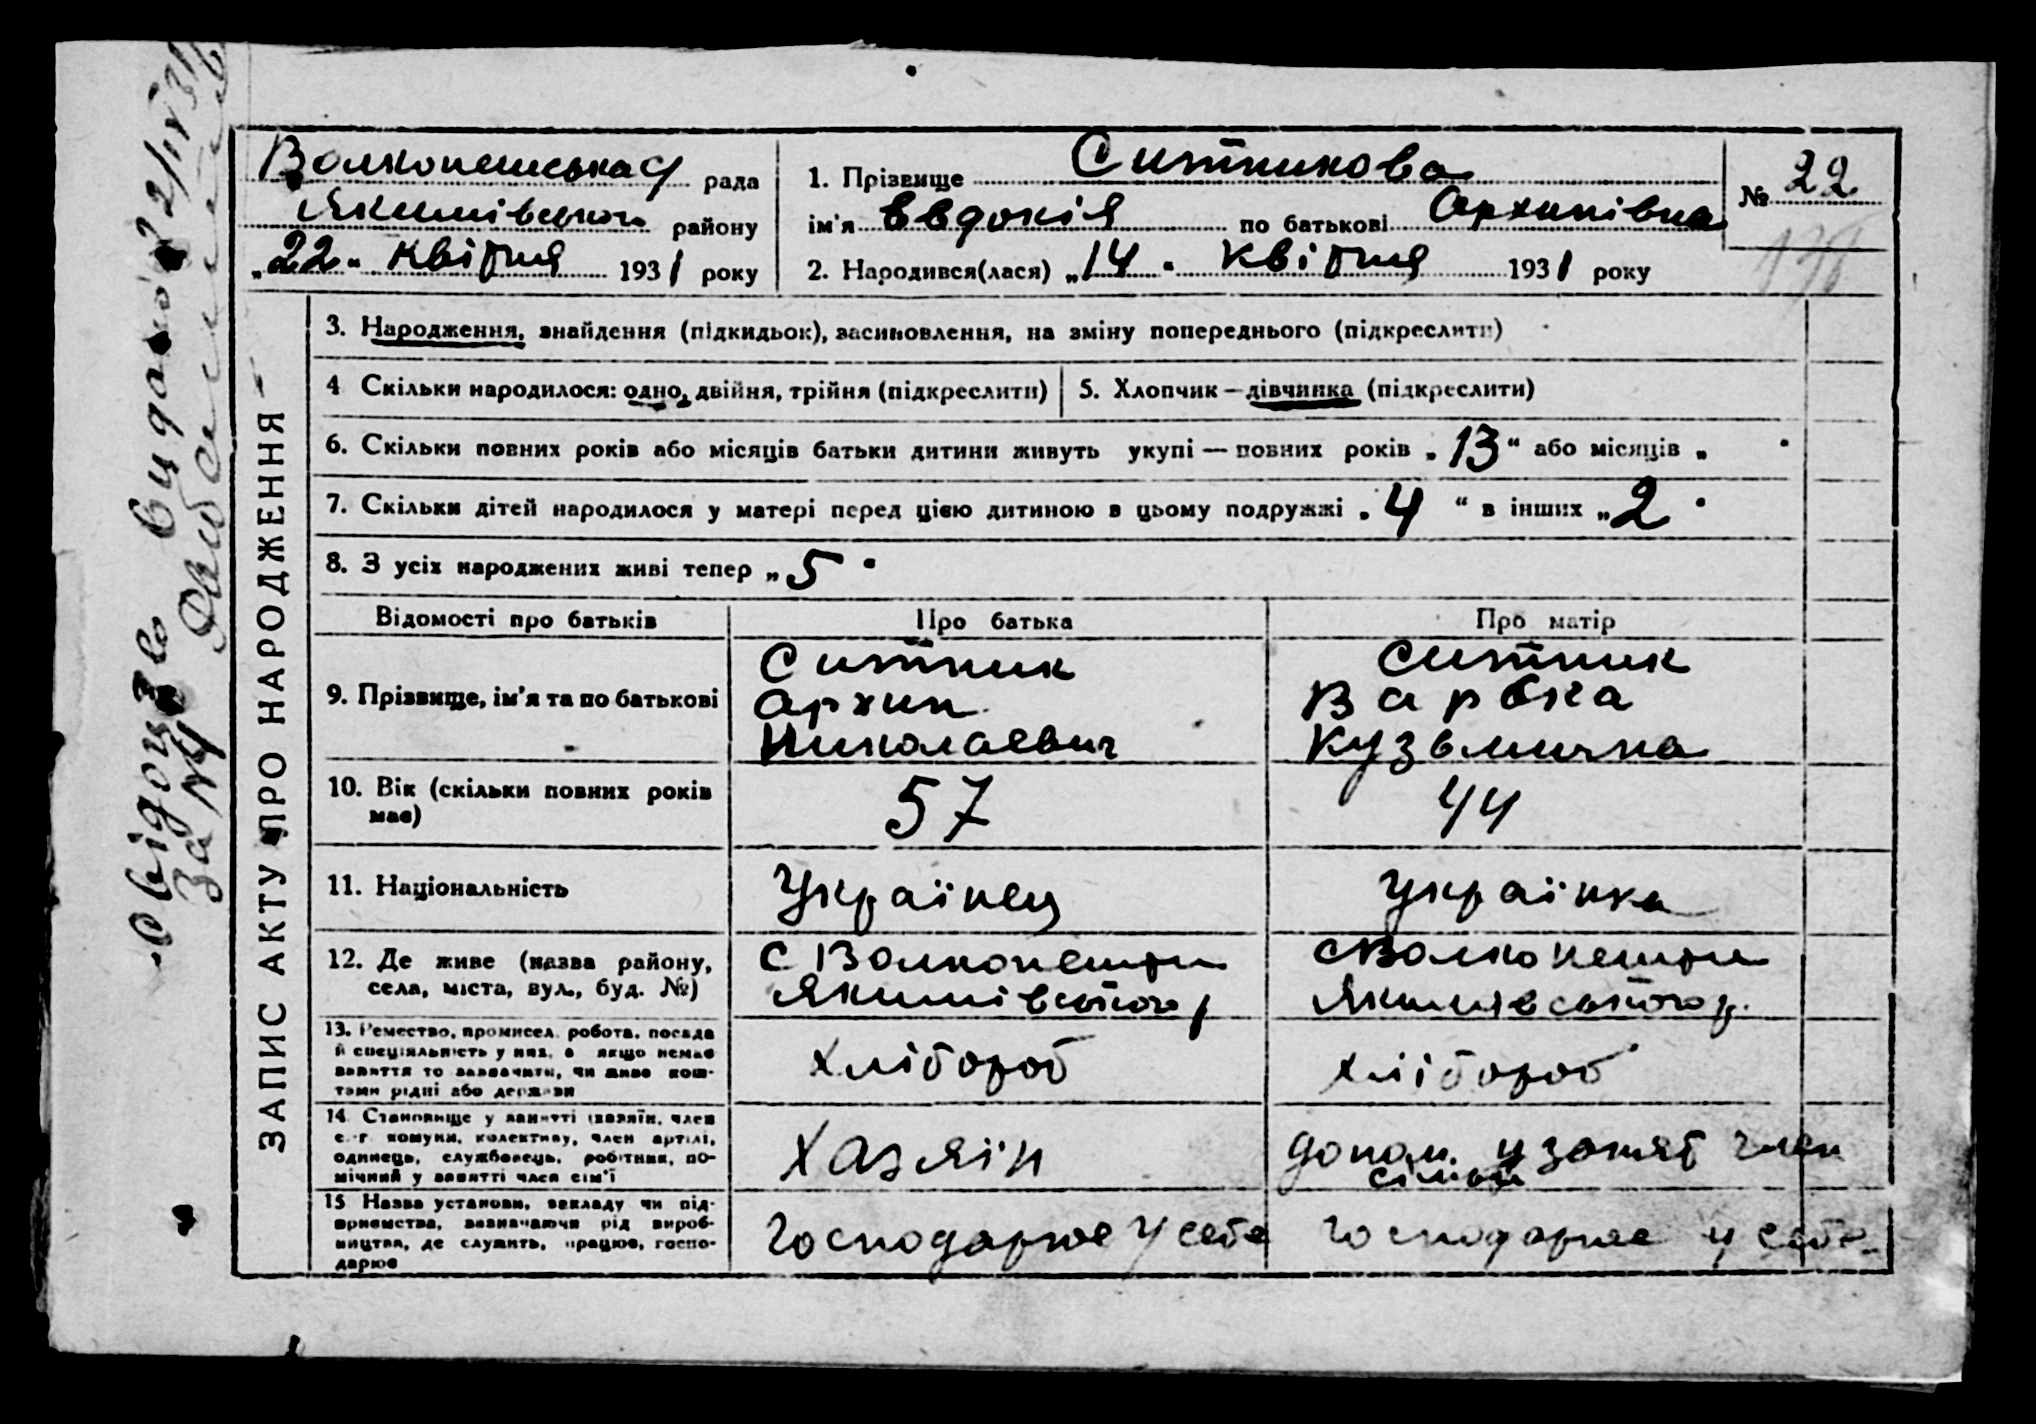 Волконешська рада
Якимівського району
„22“ Квітня 1931 року
1. Прізвище Ситникова
ім'я Евдокія по батькові Архипівна
2. Народився(лася) „14“ Квітня 1931 року
№ 22
ЗАПИС АКТУ ПРО НАРОДЖЕННЯ
3. Народження, знайдення (підкидьок), засиновлення, на зміну попереднього (підкреслити)
4 Скільки народилося: одно, двійня, трійня (підкреслити)
5. Хлопчик — дівчинка (підкреслити)
6. Скільки повних років або місяців батьки дитини живуть укупі — повних років „13“ або місяців „
7. Скільки дітей народилося у матері перед цією дитиною в цьому подружжі „4“ в інших „2“
8. З усіх народжених живі тепер „5“
Відомості про батьків
Про батька
Про матір
9. Прізвище, ім'я та по батькові
Ситник
Архип
Николаевич
Ситник
Варвка
Кузьмична
10. Вік (скільки повних років
має)
57
44
11. Національність
Українец
Українка
12. Де живе (назва району,
села, міста, вул., буд. №)
с Волконешти
Якимівського р
с Волконешти
Якимівського р.
13. Ремество, промисел, робота, посада
й спеціяльність у них, а якщо немає
заняття то зазначити, чи живе кош-
тами рідні або держави
Хлібороб
Хлібороб
14. Становище у занятті (хазяїн, член
с.-г. комуни, колективу, член артілі,
одинець, службовець, робітник, по-
мічний у занятті член сім'ї
Хазяін
допом. у занят член
сімьи
15 Назва установи, закладу чи під-
приємства, зазначаючи рід вироб-
ництва, де служить, працює, госпо-
дарює
Господарює у себе
Господарює у себе
Свідоцтво видано 22/IV 31
за №